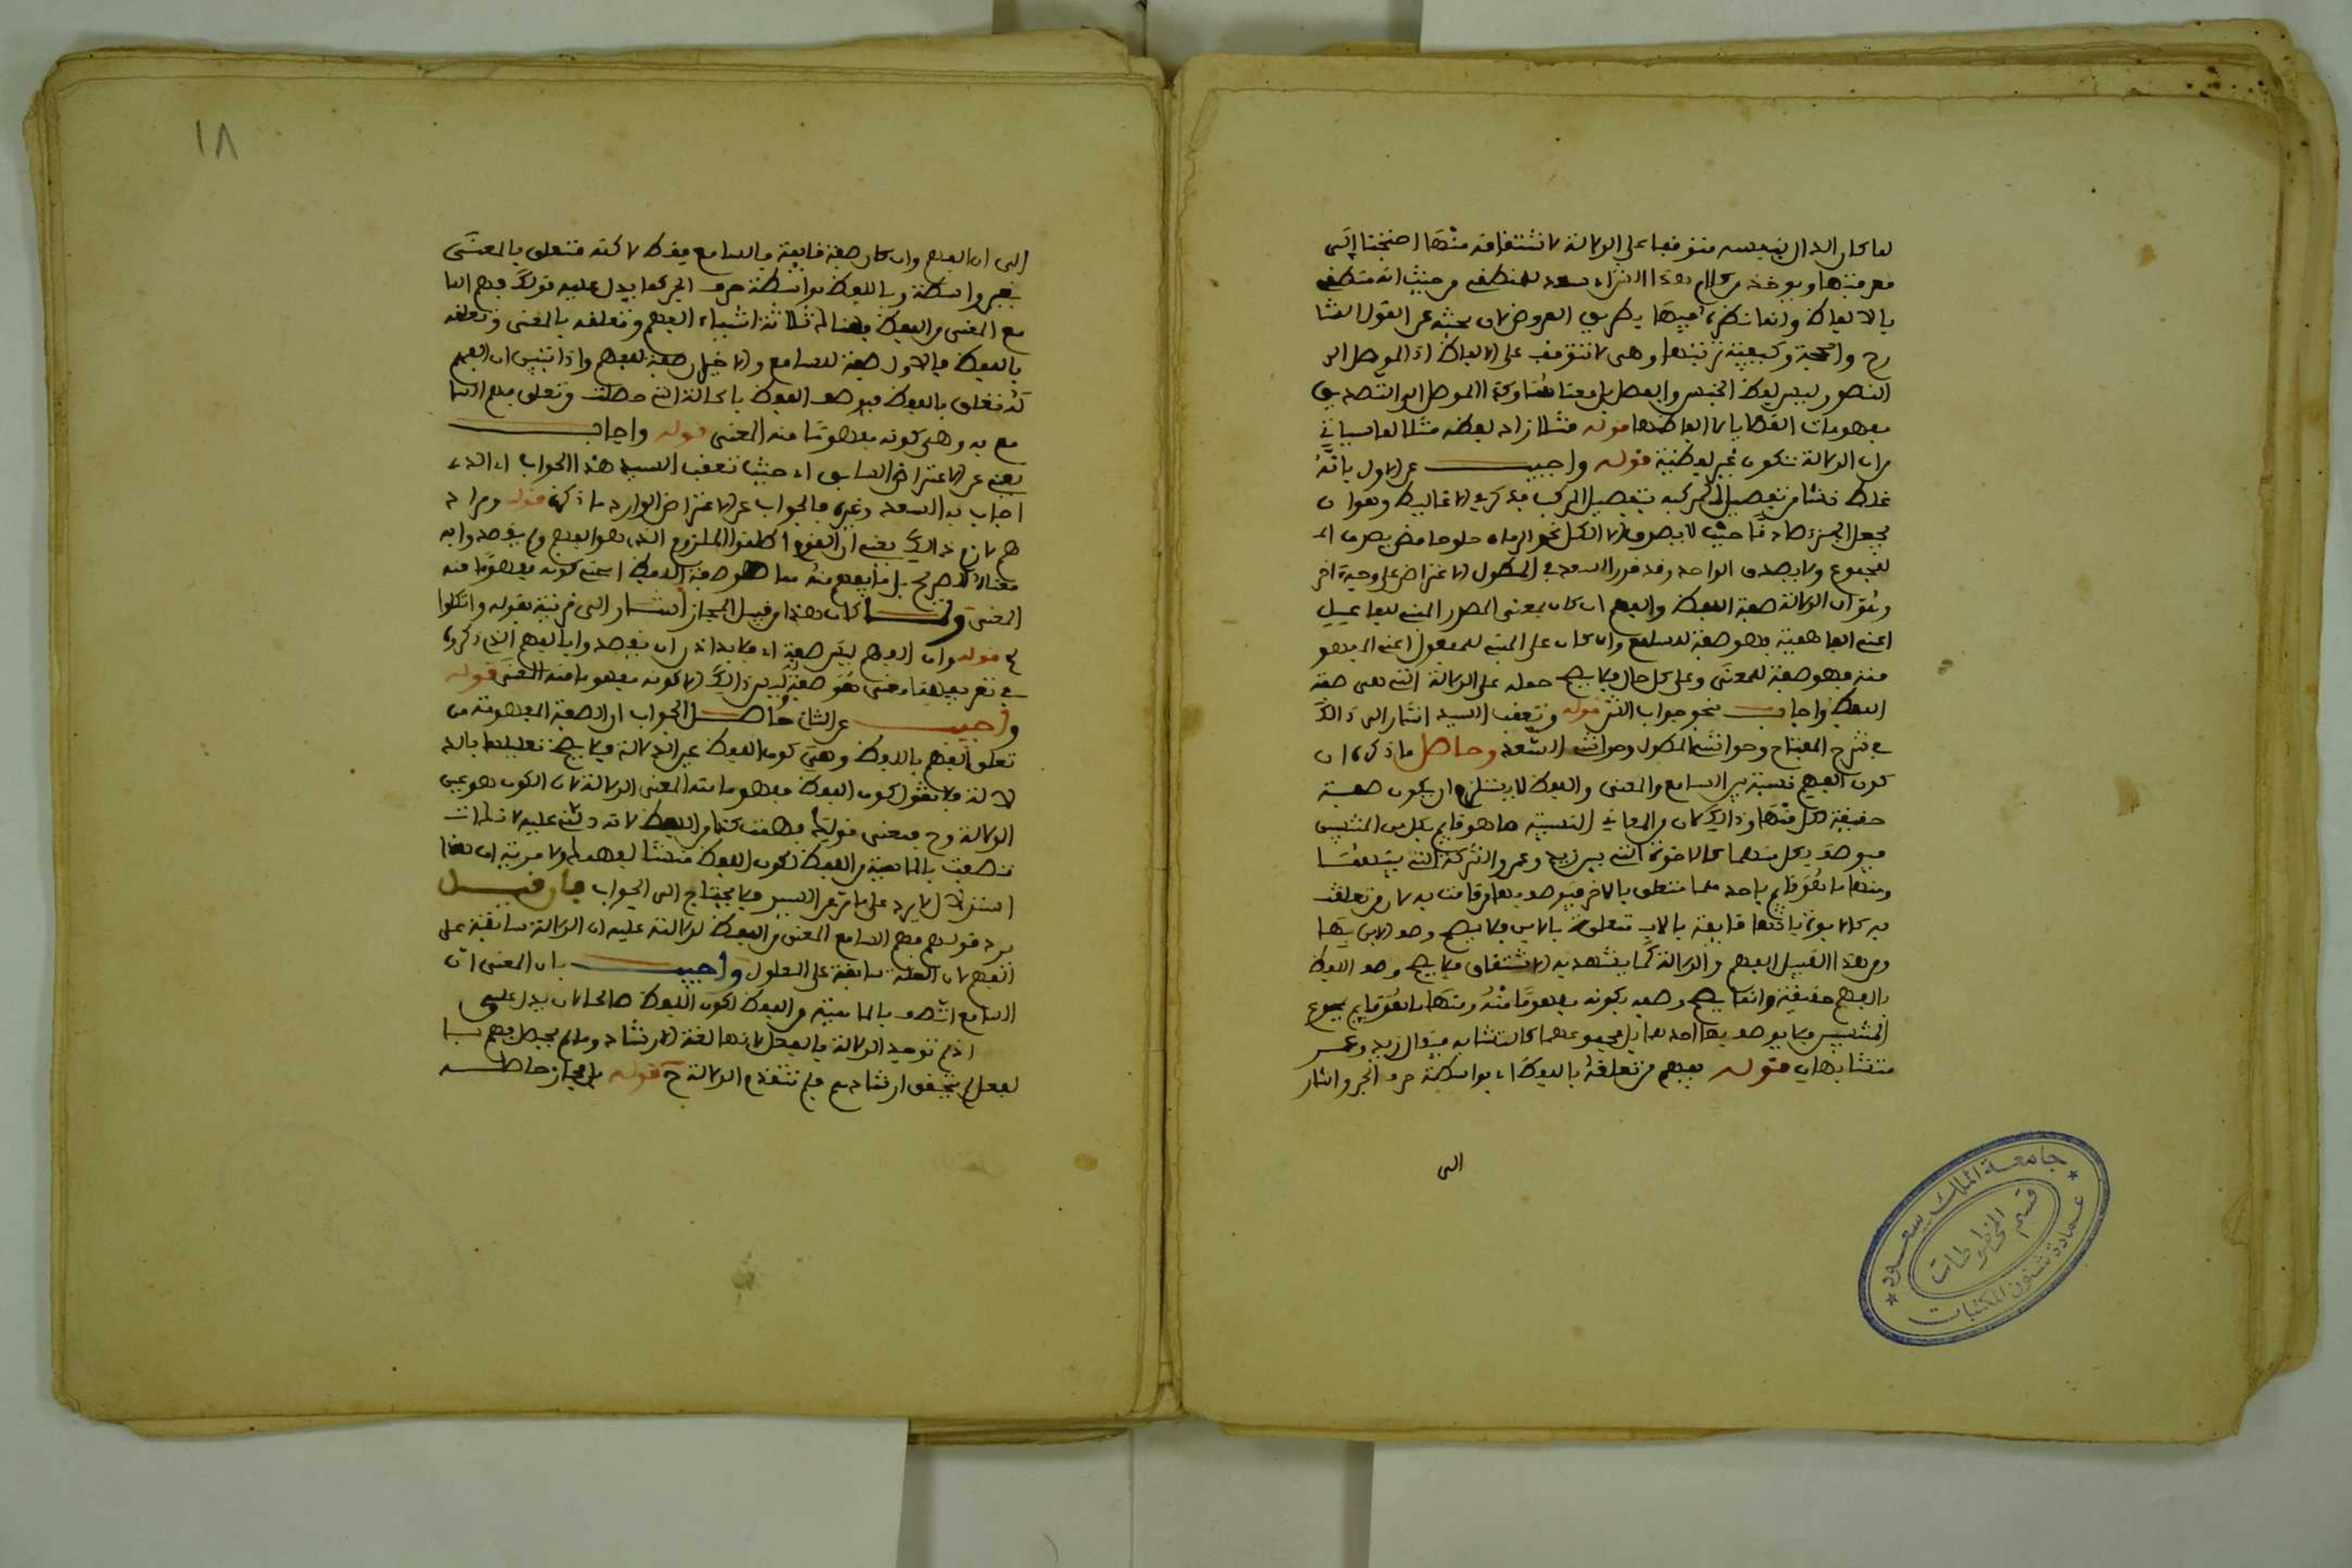 لما كان الدال بنفسه متوقفا على الدلالة لاشتقاقه منها احتجنا إلى
معرفتها ويوخذ من كلام هذا الشراء للمنطقي من حيث انه منطقي
بالالفاظ وانما نظره فيها بطريق العروض لان بحثه عن القول الشا
رح والحجة وكيفية ترتيبها وهي لا تتوقف على الالفاظ اذ الموصل الى
التصور ليس لفظ الجنس والفصل بل معناهما وكذا الموصل الى التصديق
مفهومات القضايا لا الفاظها قوله مثلا زاد لفظة مثلا لما سياتي
من ان الدلالة تكون غير لفظية قوله واجيب عن الاول بانه
غلط نشا من تفصيل المركب بتفصيل المركب فذكر في الاغاليط وهو ان
يجعل الجزء صادقا حيث لا يصدق الا الكل نحو الرمان حلو حامض يصدق الـ
لمجموع ولا يصدق الواحد وقد قرر السعد في المطول الاعتراض على وجه اخر
وهو ان الدلالة صفة اللفظ والفهم ان كان بمعنى المصدر المبني للفاعل
اعني الفاهمية فهو صفة للسامع وان كان على المبني للمفعول اعني المفهو
مية فهو صفة للمعنى وعلى كل حال فلا يصح حمله على الدلالة التي هي صفة
اللفظ واجاب بنحو جواب الش قوله وتعقب السيد اشار الى ذالك
في شرح المفتاح وحواشي المطول وحواشي السعد وحاصل ما ذكره ان
كون الفهم نسبة بين السامع والمعنى واللفظ لا يستلزم ان يكون صفة
حقيقة لكل منها وذالك لان من المعاني النسبية ما هو قايم بكل من المنتسبين
فيوصف به كل منهما كالاخوة التي بين زيد وعمرو والشركة التي بينهما
ومنها ما هو قايم باحدهما متعلق بالاخر فيوصف بها من قامت به لا من تعلقت
به كالابوة فانها قايمة بالاب متعلقة بالابن فلا يصح وصف الابن بها
ومن هذا القبيل الفهم والدلالة كما يشهد به الاشتقاق فلا يصح وصف اللفظ
بالفهم حقيقة وانما يصح وصفه بكونه مفهوما منه ومنها ما هو قايم بمجموع
المنتسبين فلا يوصف بها احدهما بل مجموعهما كالتشابه فيقال زيد وعمر
متشابهان قوله يفهم من تعلقه باللفظ اي بواسطة حرف الجر واشار
الى
جامعة الملك سعود
قسم المخطوطات
عمادة شئون المكتبات
١٨
الى ان الفهم وان كان صفة قايمة بالسامع فقط لاكنه متعلق بالمعنى
بغير واسطة وباللفظ بواسطة حرف الجر كما يدل عليه قولك فهم السا
مع المعنى من اللفظ فهناك ثلاثة اشياء الفهم وتعلقه بالمعنى وتعلقه
باللفظ فالاول صفة للسامع والاخيران صفة للفهم واذا تبين ان الفهم
له تعلق باللفظ فيوصف اللفظ بالحالة التي حصلت وتعلق فهم السا
مع به وهي كونه مفهوما منه المعنى قوله واجاب
يعني عن الاعتراض السابق اي حيث تعقب السيد هذا الجواب اي الذي
اجاب به السعد وغيره فالجواب عن الاعتراض الوارد ما ذكره قوله ومراد
هم لازم ذالك يعني ان القوم اطلقوا الملزوم الذي هو الفهم ولم يقصدوا به
معناه الصريح بل ما يفهم منه مما هو صفة اللفظ اعني كونه مفهوما منه
المعنى ولما كان هذا من قبيل المجاز اشار الى قرينة بقوله واتكلوا
قوله وان الفهم ليس صفة اي فلا بد اذن ان يقصدوا بالفهم الذي ذكروه
في تعريفها معنى هو صفة وليس ذالك الا كونه مفهوما منه المعنى قوله
واجيب عن الثاني حاصل الجواب ان الصفة المفهومة من
تعلق الفهم باللفظ وهي كون اللفظ عين الدلالة فلا يصح تعليلها بالد
لالة فلا يقول كون اللفظ مفهوما منه المعنى الدلالة لان الكون هو عين
الدلالة وح فمعنى قولك فهمت كذا من اللفظ لانه دلني عليه لانها
اتصفت بالماهية من اللفظ لكون اللفظ منشئا لفهمها ولا مرية ان هذا
السؤال لا يرد على ما مر عن السيد فلا يحتاج الى الجواب فان قيل
يرد قولهم فهم السامع المعنى من اللفظ لدلالته عليه ان الدلالة سابقة على
الفهم لان العلة سابقة على المعلول واجيب بان المعنى ان
السامع اتصف بالماهية من اللفظ لكون اللفظ صالحا لان يدل عليه
اذ لم توجد الدلالة بالفعل لانها لغة الارشاد وما لم يحصل فهم بـا
لفعل لم يتحقق ارشاد به فلم تتقدم الدلالة ح قوله بل مجاز حاصله